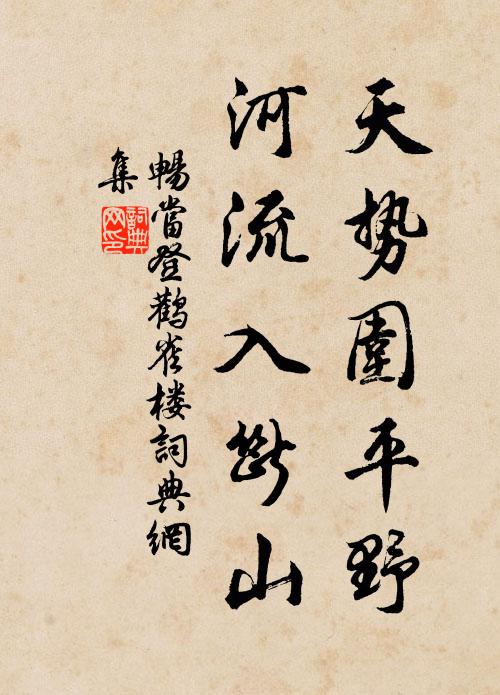 天势圍平野
河流入斷山
暢當登鸛雀楼詞典網
集
詞典網印